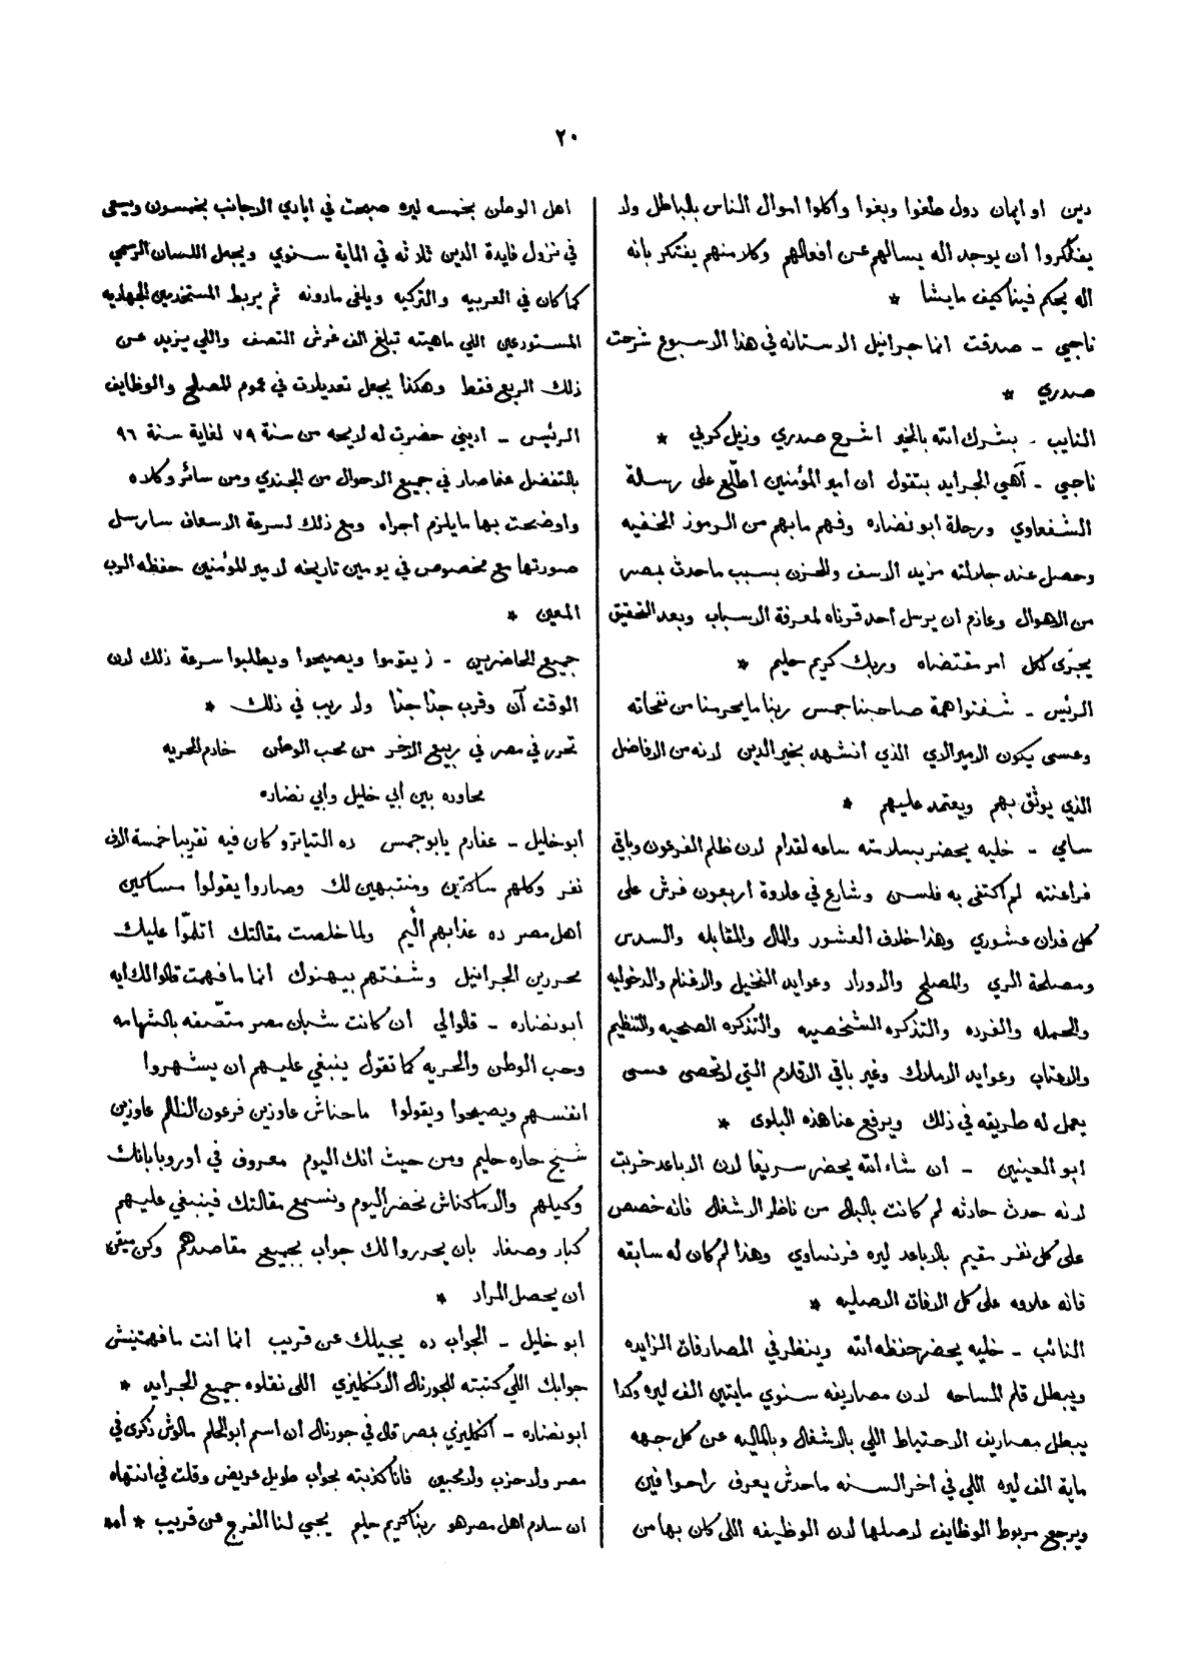 ٢٠
دين او ايمان دول طغوا وبغوا وأكلوا اموال الناس بالباطل ولا
يفتكروا أن يوجد اله يسالهم عن أفعالهم وكلا منهم يفتكر بانه
اله يحكم فينا كيف مايشا *
ناجي - صدقت انما جرانيل الاستانه في هذا الاسبوع شرحت
صدري *
النايب - بشرك الله بالخير اشرح صدري وزيل كربي *
ناجي - آهي الجرايد بتقول ان امير المؤمنين اطّلع على رسالة
الشفعاوي ورحلة أبو نضاره وفهم مابهم من الرموز الخفيه
وحصل عند جلالته مزيد الاسف والحزن بسبب ماحدث بمصر
من الاهوال وعازم ان يرسل أحد قرناه لمعرفة الاسباب وبعد التحقيق
يجرى لكل أمر مقتضاه وربك كريم حليم *
الرئيس - شفتوا همة صاحبنا جمس ربنا مايحرمنا من نفحاته
وعسى يكون الاميرالاي الذي أنشهد بخير الدين لانه من الافاضل
الذي يوثق بهم ويعتمد عليهم *
سامي - خليه يحضر بسلامته ساعه لقدام لان ظلم الفرعون وباقي
فراعنته لم اكتفى به فلسن وشارع في علاوة اربعون غرش على
كل فدان عشوري وهذا خلاف العشور والمال والمقابله والسدس
ومصلحة الري والمصلح والدوراد وعوايد النخيل والاغنام والدخوليه
والحمله والفرده والتذكره الشخصيه والتذكره الصحيه والتنظيم
والاعتاب وعوايد الاملاك وغير باقي الاقلام التي لاتحصى عسى
يعمل له طريقه في ذلك ويرفع عنا هذه البلوى *
ابو العينين - ان شاء الله يحضر سريعا لان الاباعد خربت
لانه حدث حادثه لم كانت بالبال من ناظر الاشغال فانه خصص
على كل نفر مقيم بالاباعد ليره فرنساوي وهذا لم كان له سابقه
فانه علاوه على كل الافات الاصليه *
النائب - خليه يحضر حفظه الله وينظر في المصارفات الزايده
ويبطل قلم المساحه لان مصاريفه سنوي مايتين الف ليره وكدا
يبطل مصاريف الاحتياط اللي بالاشغال وبالماليه عن كل جهه
ماية الف ليره اللي في أخر السنه ماحدش يعرف راحوا فين
ويرجع مربوط الوظايف لاصلها لان الوظيفه اللي كان بها من
اهل الوطن بخمسه ليره صبحت في ايادي الاجانب بخمسون ويسعى
في نزول فايدة الدين ثلاثه في الماية سنوي ويجعل اللسان الرسمي
كما كان في العربيه والتركيه ويلغى مادونه ثم يربط المستخدمين الجهاديه
المستودعين اللي ماهيته تبلغ الف غرش النصف واللي يزيد عن
ذلك الربع فقط وهكذا يجعل تعديلات في عموم المصلح والوظايف
الرئيس - اديني حضرت له لايحه من سنة ٧٩ لغاية سنة ٩٦
بالتفضل عما صار في جميع الاحوال من الجندي ومن سائر وكلاه
واوضحت بها مايلزم أجراه ومع ذلك لسرعة الاسعاف سارسل
صورتها مع مخصوص في يومين تاريخه لامير المؤمنين حفظه الرب
المعين *
جميع الحاضرين - يقوموا ويصيحوا ويطلبوا سرعة ذلك لان
الوقت آن وقرب جدًا جدًا ولا ريب في ذلك *
تحرر في مصر في ربيع الاخر من محب الوطن خادم الحريه
محاوره بين أبي خليل وأبي نضاره
أبو خليل - عفارم يابو جمس ده التياترو كان فيه تقريبا خمسة الاف
نفر وكلهم ساكتين ومنتبهين لك وصاروا يقولوا مساكين
أهل مصر ده عذابهم أليم ولما خلصت مقالتك اتلمّوا عليك
محررين الجرانيل وشفتهم بيهنوك انما ما فهمت قالوا لك ايه
أبو نضاره - قالوا لي أن كانت شبان مصر متصّفه بالشهامه
وحب الوطن والحريه كما تقول ينبغي عليهم ان يشهروا
انفسهم ويصيحوا ويقولوا ماحناش عاوزين فرعون الظالم عاوزين
شيخ حاره حليم ومن حيث انك اليوم معروف في اوروبا بانك
وكيلهم والا ماكناش نحضر اليوم ونسمع مقالتك فينبغي عليهم
كبار وصغار بان يحرروا لك جواب بجميع مقاصدهم وكن ميقن
أن يحصل المراد *
ابو خليل - الجواب ده يجيلك عن قريب انما أنت ما فهمتنيش
جوابك اللي كتبته للجورنال الانكليزي اللي نقلوه جميع الجرايد *
أبو نضاره - أنكليزي بمصر قال في جورنال ان اسم أبو الحلم مالوش ذكرى في
مصر ولا حزب ولا محبين فانا كذبته بجواب طويل عريض وقلت في انتهاه
ان سلام اهل مصر هو ربنا كريم حليم يجيي لنا الفرج عن قريب *